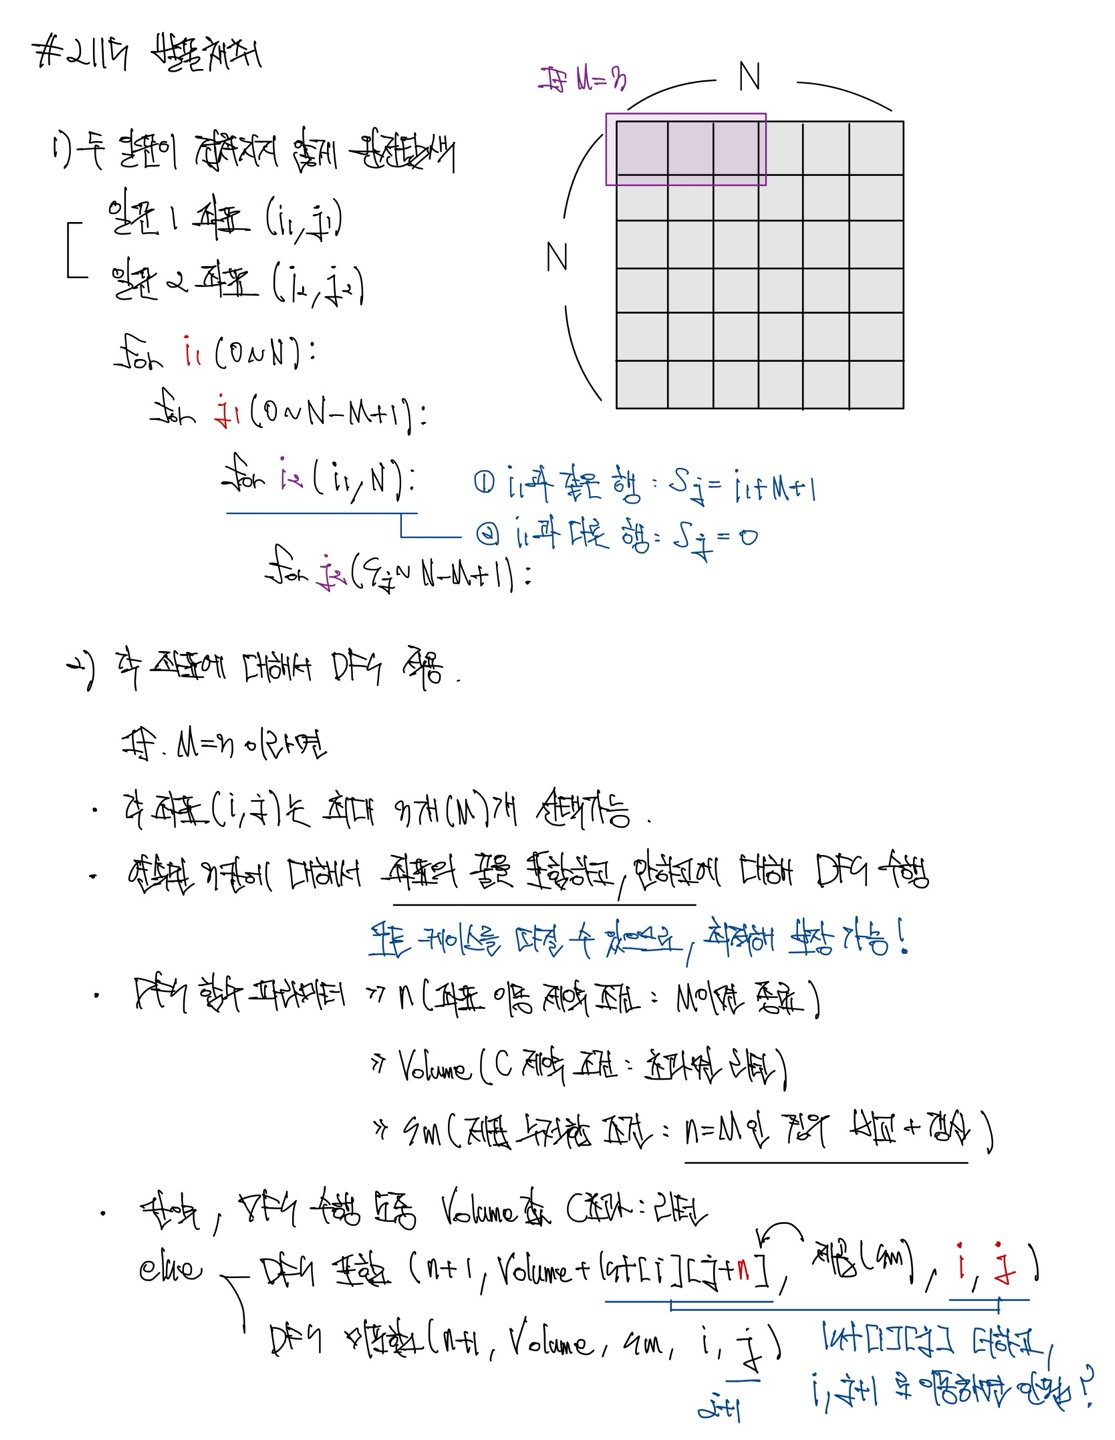 #2115 벌꿀채취
If M=3
N
N
1) 두 일꾼이 겹쳐지지 않게 완전탐색
일꾼 1 좌표 (i1, j1)
일꾼 2 좌표 (i2, j2)
for i1 (0~N):
for j1 (0~N-M+1):
for i2 (i1, N):
① i1과 같은 행 : Sj = i1+M+1
② i1과 다른 행 : Sj = 0
for j2 (Sj~N-M+1):
2) 각 좌표에 대해서 DFS 적용.
If. M=3 이라면
· 각 좌표(i, j)는 최대 3개(M)개 선택가능.
· 연속된 3칸에 대해서 좌표의 꿀을 포함하고, 안하고에 대해 DFS 수행
모든 케이스를 따질 수 있으므로, 최적해 보장 가능!
· DFS 함수 파라미터 » n (좌표 이동 제약 조건 : M이면 종료)
» Volume (C 제약 조건 : 초과면 리턴)
» sm (제곱 누적합 조건 : n=M인 경우 비교 + 갱신)
· 만약, DFS 수행 도중 Volume값 C초과 : 리턴
else DFS 포함 (n+1, Volume + lst[i][j+n], 제곱(sm), i, j)
DFS 미포함 (n+1, Volume, sm, i, j)
j+1
lst[i][j] 더하고,
i, j+1 로 이동하면 안됨?